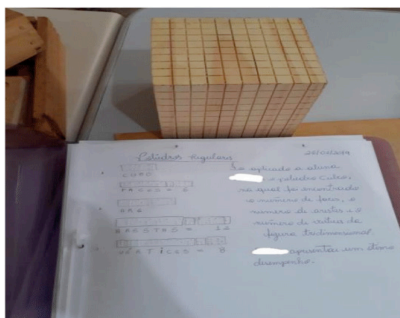 Poliedros Regulares
CUBO
FACES = 6
ARESTAS = 12
VÉRTICES = 8
Foi aplicado a aluna
o poliedro Cubo,
no qual foi encontrado
o número de faces, o
número de arestas e o
número de vértices da
figura tridimensional.
apresentou um ótimo
desempenho.